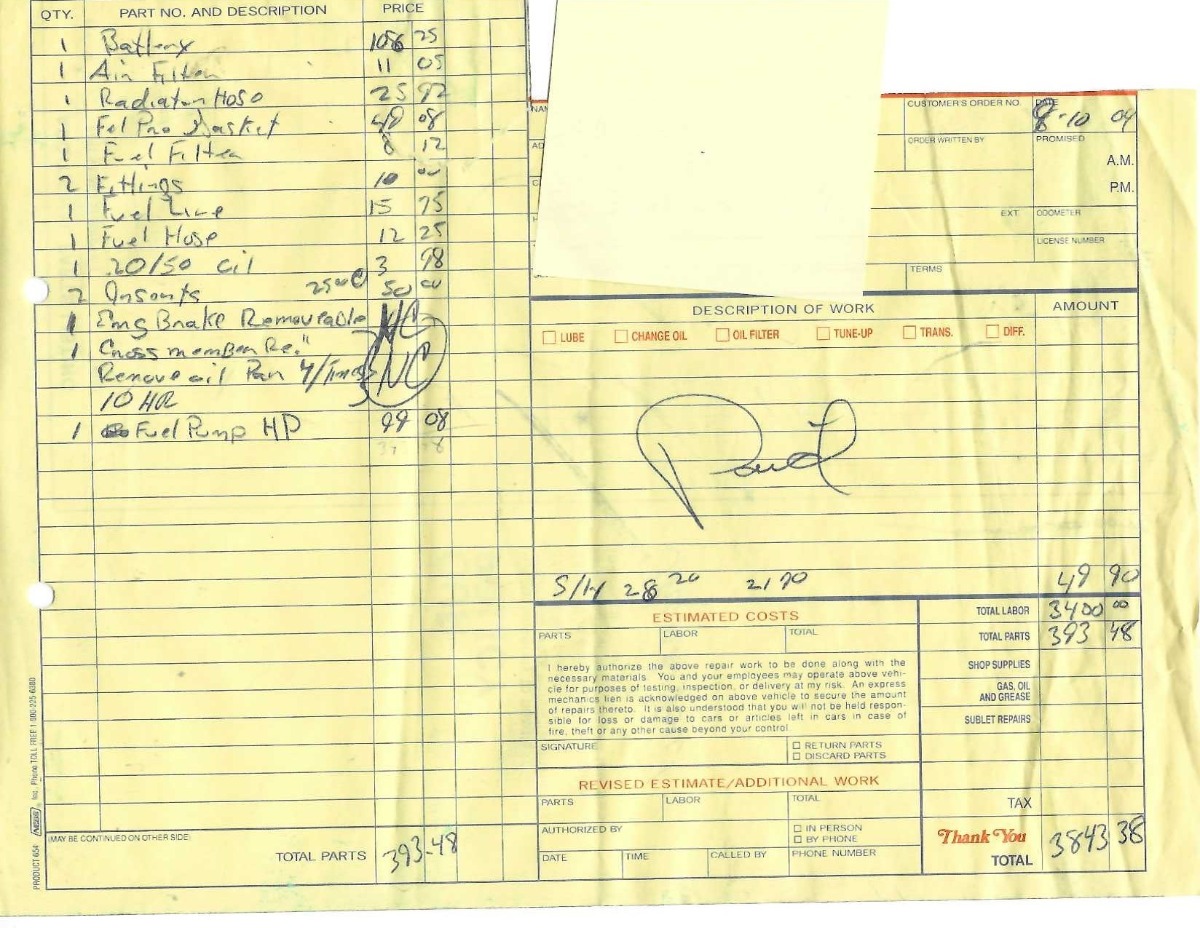 QTY. PART NO. AND DESCRIPTION PRICE
1 Battery 106 25
1 Air Filter 11 05
1 Radiator Hose 25 92
1 Fel Pro Gasket 49 08
1 Fuel Filter 8 12
2 Fittings 10 00
1 Fuel Line 15 75
1 Fuel Hose 12 25
1 20/50 Oil 3 98
2 Insarts 25 00 50 00
1 Emg Brake Removeable NC
1 Crossmember Re."
Remove oil Pan 4/times NC
10 HR
1 Fuel Pump HP 99 08
(MAY BE CONTINUED ON OTHER SIDE)
TOTAL PARTS 393.48
PRODUCT 654 NEBS Inc. Phone TOLL FREE 1-800-225-6380
CUSTOMER'S ORDER NO. DATE 8-10 04
ORDER WRITTEN BY PROMISED
A.M.
P.M.
EXT. ODOMETER
LICENSE NUMBER
TERMS
DESCRIPTION OF WORK AMOUNT
LUBE CHANGE OIL OIL FILTER TUNE-UP TRANS. DIFF.
Paid
S/H 28 20 21 70 49 90
ESTIMATED COSTS
PARTS LABOR TOTAL
I hereby authorize the above repair work to be done along with the
necessary materials. You and your employees may operate above vehi-
cle for purposes of testing, inspection, or delivery at my risk. An express
mechanics lien is acknowledged on above vehicle to secure the amount
of repairs thereto. It is also understood that you will not be held respon-
sible for loss or damage to cars or articles left in cars in case of
fire, theft or any other cause beyond your control.
SIGNATURE
RETURN PARTS
DISCARD PARTS
REVISED ESTIMATE/ADDITIONAL WORK
PARTS LABOR TOTAL
AUTHORIZED BY
IN PERSON
BY PHONE
DATE TIME CALLED BY PHONE NUMBER
TOTAL LABOR 3400 00
TOTAL PARTS 393 48
SHOP SUPPLIES
GAS, OIL
AND GREASE
SUBLET REPAIRS
TAX
Thank You
TOTAL 3843 38